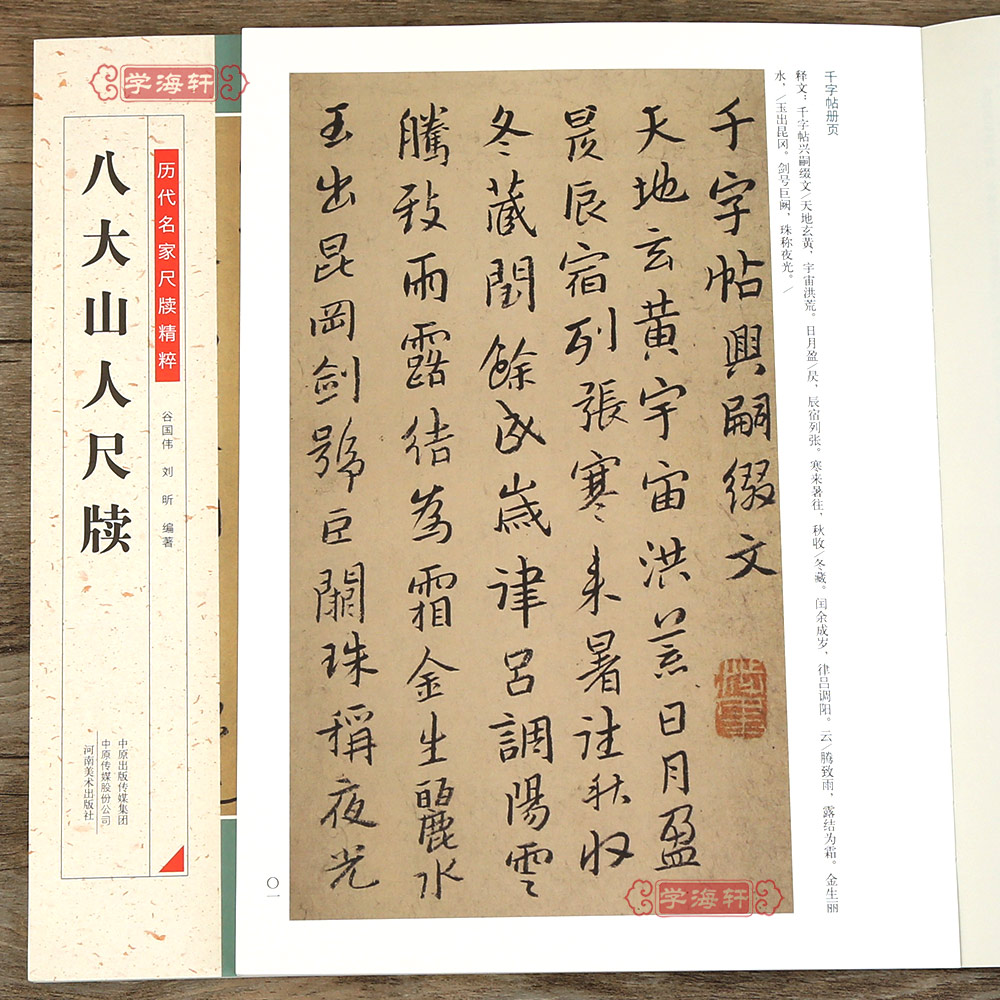 学海轩
历代名家尺牍精粹
八大山人尺牍
谷国伟 刘昕 编著
中原出版传媒集团
中原传媒股份公司
河南美术出版社
千字帖册页
释文：千字帖兴嗣缀文/天地玄黄，宇宙洪荒。日月盈/昃，辰宿列张。寒来暑往，秋收/冬藏。闰余成岁，律吕调阳。云/腾致雨，露结为霜。金生丽
水，/玉出昆冈。剑号巨阙，珠称夜光。/
千字帖興嗣綴文
天地玄黃宇宙洪荒日月盈
昃辰宿列張寒来暑往秋収
冬藏閏餘成歲律呂調陽雲
騰致雨露結為霜金生麗水
玉出昆岡劍號巨闕珠稱夜光
〇一
学海轩